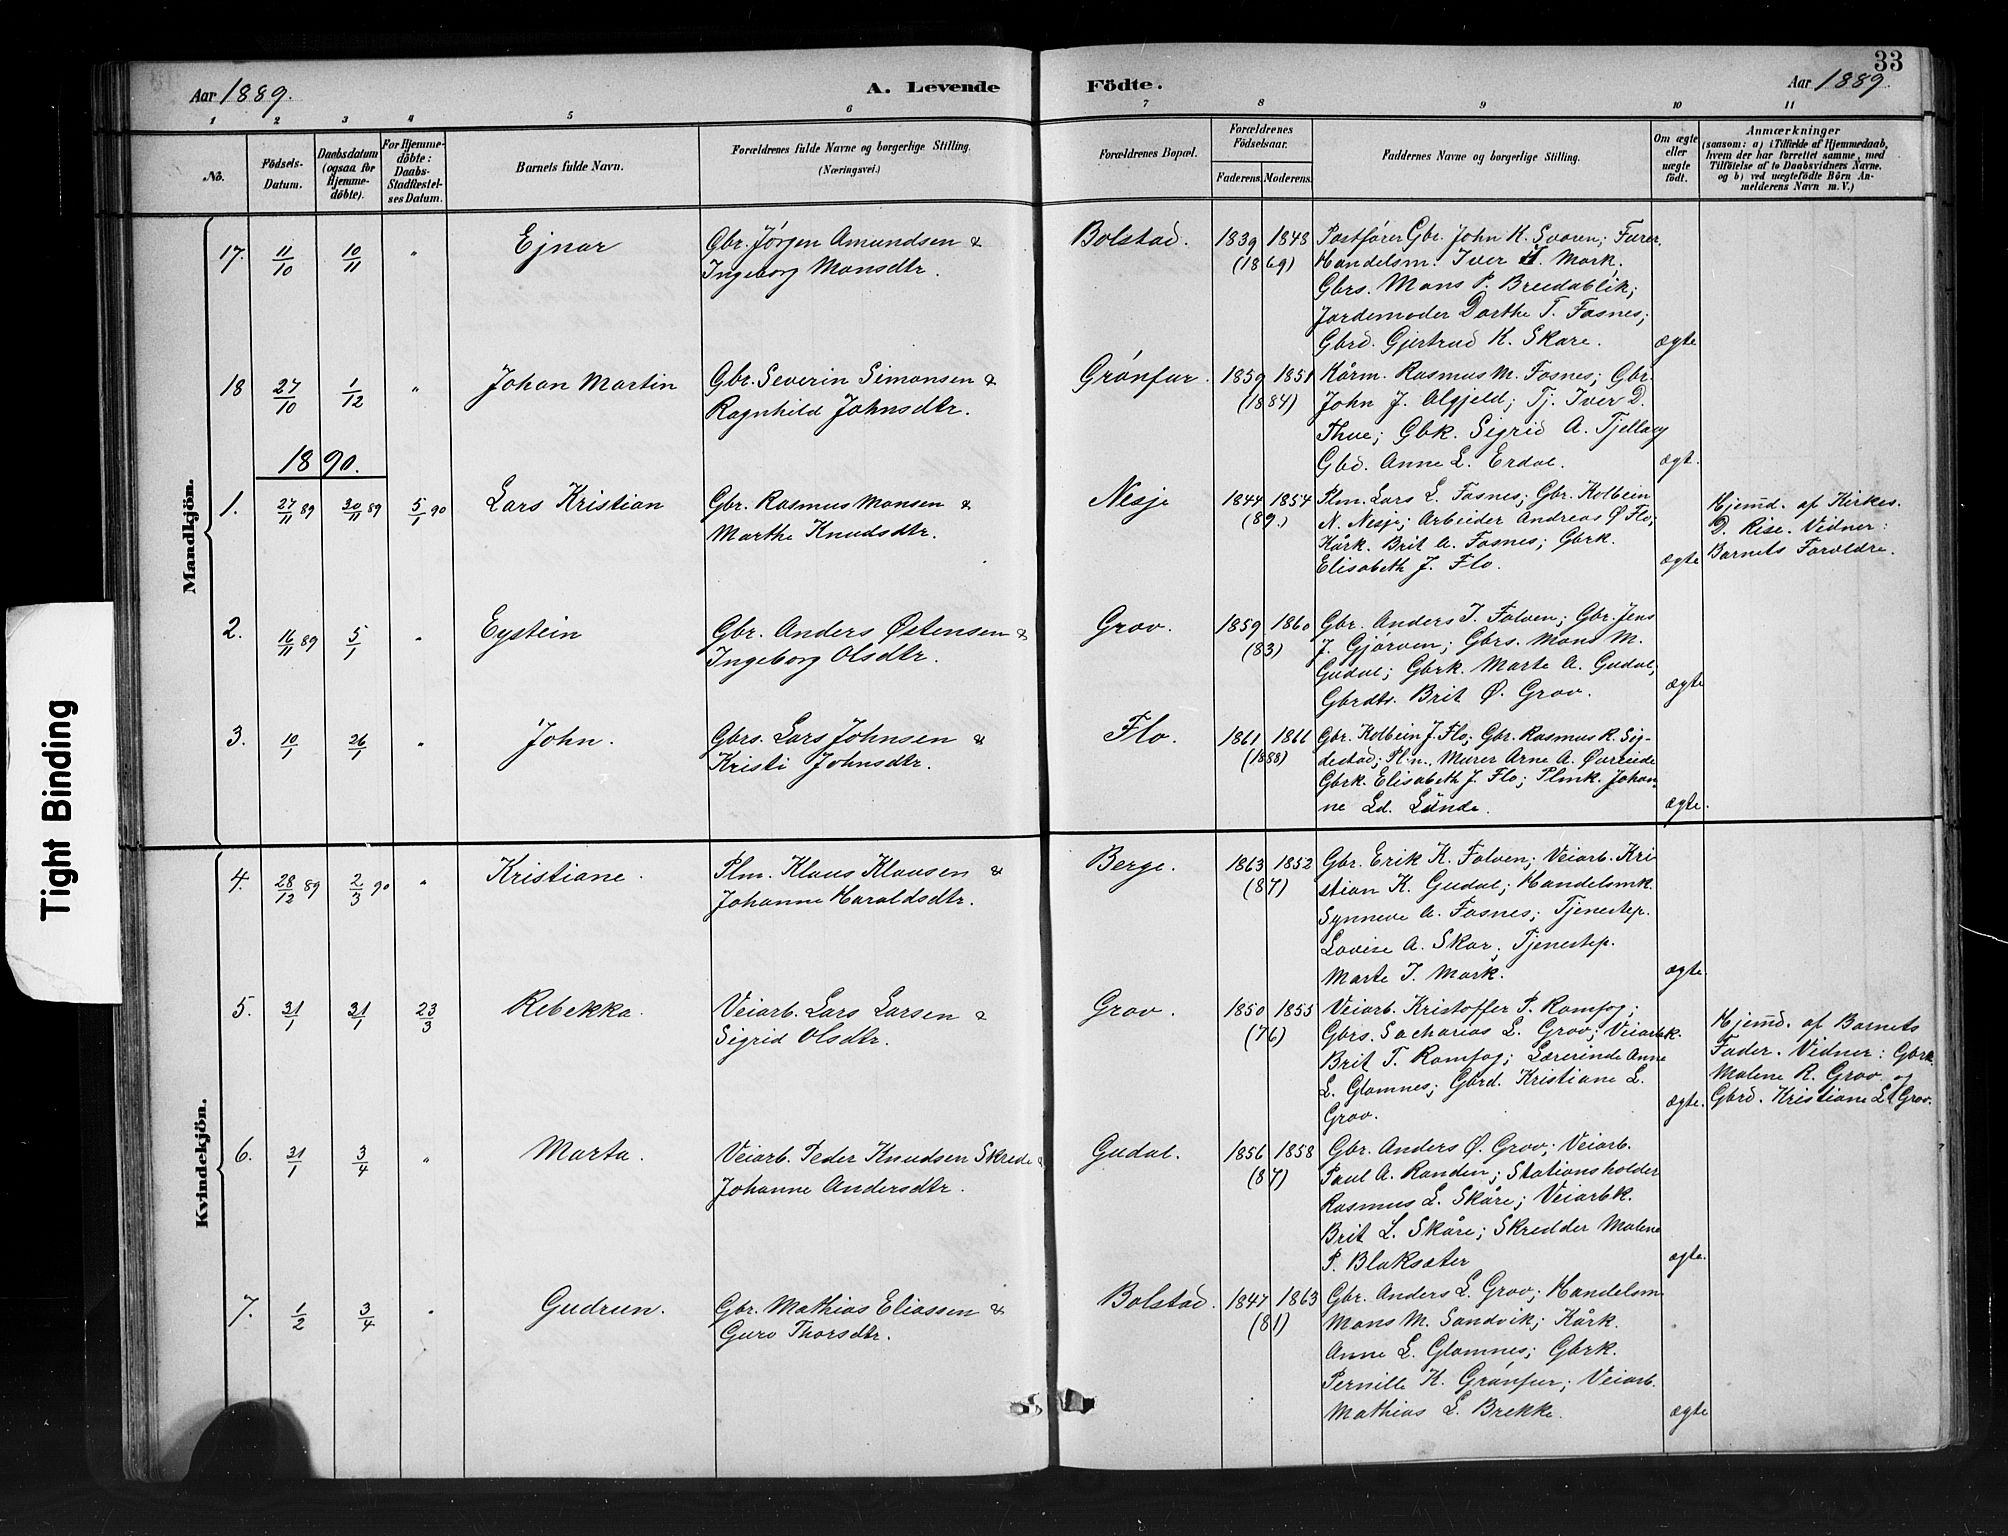 33
Aar 1889.
A. Levende
Födte.
Aar 1889.
1 2 3 4 5 6 7 8 9 10 11
No.
Födsels-
Datum.
Daabsdatum
(ogsaa for
Hjemme-
döbte).
For Hjemme-
döbte:
Daabs-
Stadfæstel-
ses Datum.
Barnets fulde Navn.
Forældrenes fulde Navne og borgerlige Stilling.
(Næringsvei.)
Forældrenes Bopæl.
Forældrenes
Födselsaar.
Faderens. Moderens.
Faddernes Navne og borgerlige Stilling.
Om ægte
eller
uægte
födt.
Anmærkninger
(saasom: a) i Tilfælde af Hjemmedaab,
hvem der har forrettet samme, med
Tilföielse af to Daabsvidners Navne.
og b) ved uægtefödte Börn An-
melderens Navn m. V.)
Mandkjön.
17. 11/10 10/11 " Ejnar
Gbr. Jörgen Amundsen &
Ingeborg Monsdtr.
Bolstad. 1839 1848
(1869)
Postfører Gbr. John K. Svoren; Furer,
Handelsm. Iver J. Mork,
Gbrs. Mons P. Breidablik;
Jordemoder Dorthe T. Fosnes;
Gbrd. Gjertrud K. Skare. ægte
18 27/10 1/12 " Johan Martin
Gbr. Severin Simonsen &
Ragnhild Johnsdtr.
Grönfur. 1859 1851
(1884)
Kårm. Rasmus M. Fosnes; Gbr.
John J. Algjeld; Tj. Iver D.
Thue; Gbk. Sigrid A. Tjellaug
Gbd. Anne L. Erdal. ægt.
1890.
1. 27/11 89 30/11 89 5/1 90 Lars Kristian
Gbr. Rasmus Monsen &
Marthe Knudsdtr.
Nesje 1844 1854
(89.)
Plm. Lars L. Fosnes; Gbr. Kolbein
N. Nesje; Arbeider Andreas Ø Flo;
Kårk. Brit A. Fosnes; Gbrk.
Elisabeth J. Flo. ægte
Hjemd. af Kirkes.
D. Rise. Vidner:
Barnets Foreldre.
2. 16/11 89 5/1 " Eystein
Gbr. Anders Østensen &
Ingeborg Olsdtr.
Grov. 1859 1860
(83)
Gbr. Anders I. Folven; Gbr. Jens
J. Gjörven; Gbrs. Mons M.
Gudal; Gbrk. Marte A. Gudal,
Gbrdtr. Brit Ø. Grov. ægte
3. 10/1 26/1 " John.
Gbrs. Lars Johnsen &
Kristi Johnsdtr.
Flo. 1861 1866
(1888)
Gbr. Kolbein J. Flo; Gbr. Rasmus R. Sig-
destad; Pl.n., Murer Arne A. Øvreeide
Gbrk. Elisabeth J. Flo; Plmk. Johan-
ne Ld. Lunde. ægte.
Kvindekjön.
4. 28/12 89 2/3 90 " Kristiane.
Plm. Klaus Klausen &
Johanne Haraldsdtr.
Berge. 1863 1852
(87)
Gbr. Erik K. Folven; Veiarb. Kri
stian K. Gudal; Handelsmk.
Synneve A. Fosnes; Tjenestep.
Lovise A. Skar, Tjenestep.
Marte I. Mork. ægte.
5. 31/1 31/1 23/3 Rebekka.
Veiarb. Lars Larsen &
Sigrid Olsdtr.
Grov. 1850 1855
(76)
Veiarb. Kristoffer P. Ramfog;
Gbrs. Sacharias L. Grov; Veiarbk.
Brit T. Ramfog; Lærerinde Anne
L. Glomnes; Gbrd. Kristiane L.
Grov. ægte.
Hjemd. af Barnets
Fader. Vidner: Gbrk.
Malene R. Grov og
Gbrd. Kristiane L. Grov.
6. 31/1 3/4 " Marta.
Veiarb. Peder Knudsen Skrede &
Johanne Andersdtr.
Gudal. 1856 1858
(87)
Gbr. Anders Ø. Grov; Veiarb.
Paul A. Randen; Stationsholder
Rasmus L. Skåre; Veiarbk.
Brit L. Skåre; Skredder Malene
P. Blaksæter ægte.
7. 1/2 3/4 " Gudrun.
Gbr. Mathias Eliassen &
Guro Thorsdtr.
Bolstad. 1847 1863
(81)
Gbr. Anders L. Grov; Handelsm
Mons M. Sandvik; Kårk.
Anne L. Glomnes; Gbrk.
Pernille K. Grönfur; Veiarb.
Mathias L. Brekke. ægte
Tight Binding